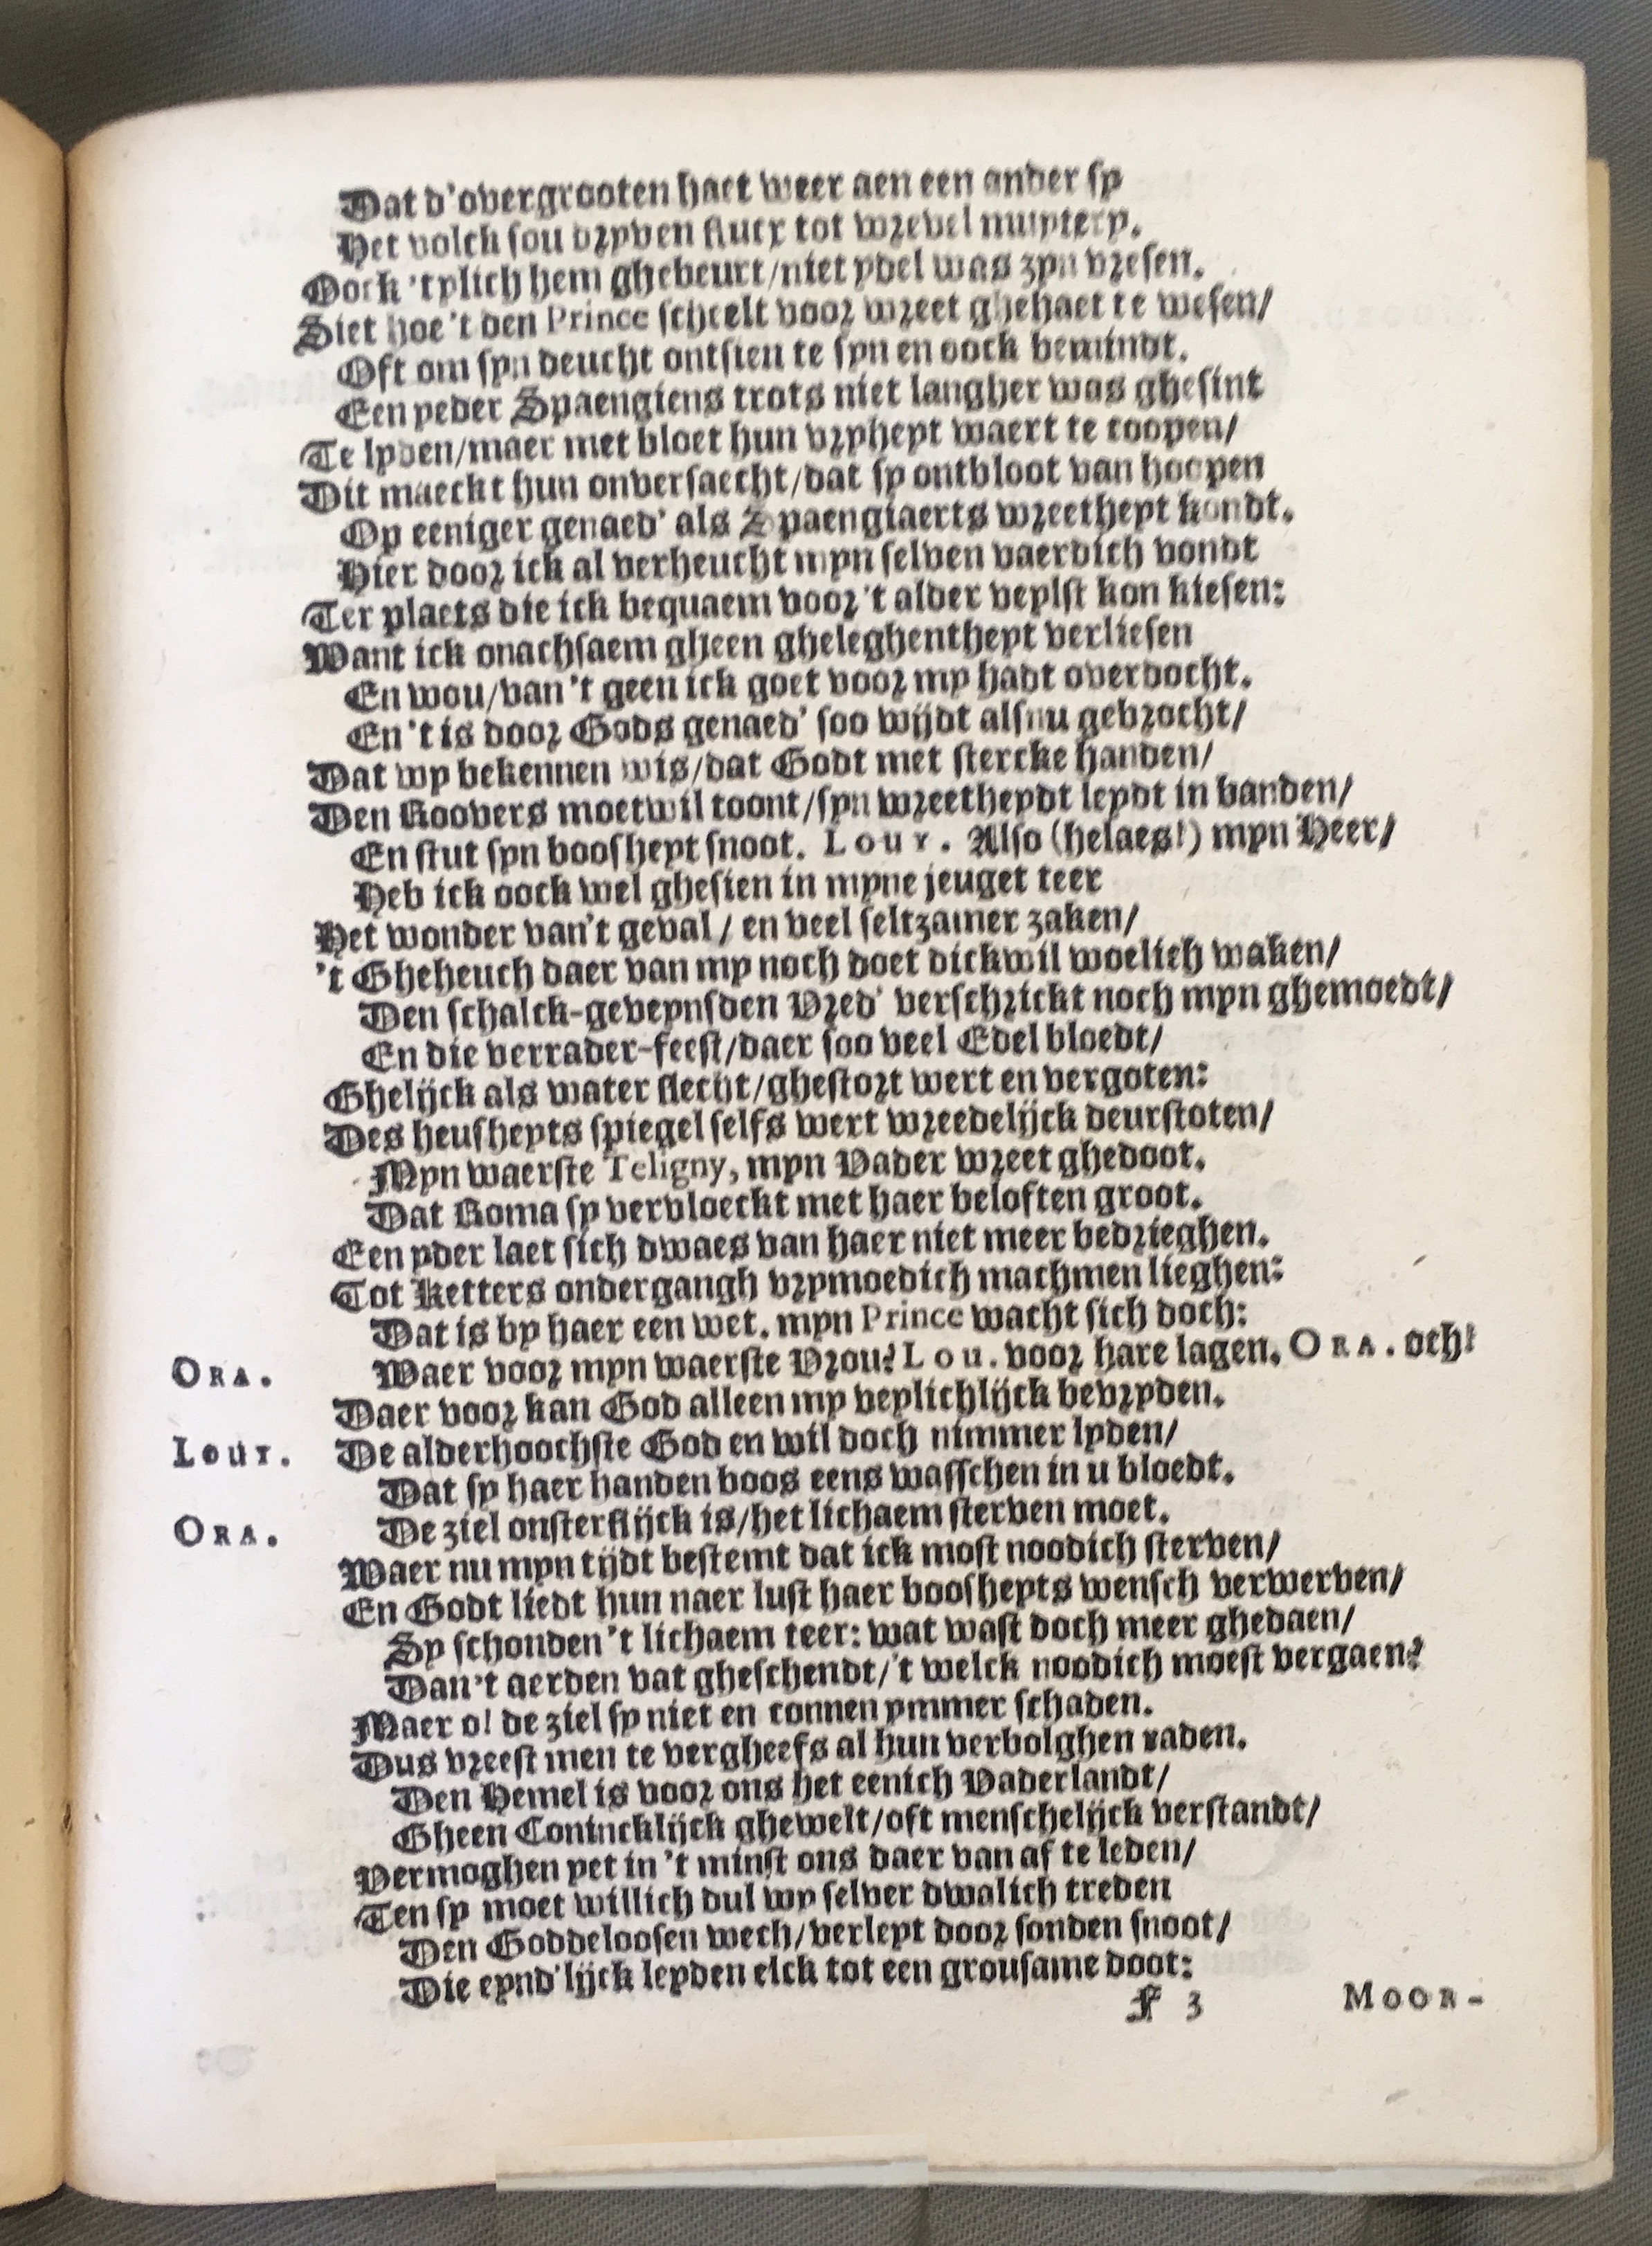 Dat d'overgrooten haet weer aen een ander sy
Het volck sou dryven flucx tot wrevel muytery.
Oock 'tylich hem ghebeurt/niet ydel was zyn vresen.
Siet hoe't den Prince scheelt voor wreet ghehaet te wesen/
Oft om syn deucht ontsien te syn en oock bemindt.
Een yeder Spaengiens trots niet langher was ghesint
Te lyden/maer met bloet hun vryheyt waert te coopen/
Dit maeckt hun onversaecht/dat sy ontbloot van hoopen
Op eeniger genaed' als Spaengiaerts wreetheyt kondt.
Hier door ick al verheucht myn selven vaerdich vondt
Ter plaets die ick bequaem voor 't alder veylst kon kiesen:
Want ick onachsaem gheen gheleghentheyt verliesen
En wou/van 't geen ick goet voor my hadt overdocht.
En 't is door Gods genaed' soo wijdt alsnu gebrocht/
Dat wy bekennen wis/dat Godt met stercke handen/
Den Roovers moetwil toont/syn wreetheydt leydt in banden/
En stut syn boosheyt snoot. Louy. Also (helaes!) myn Heer/
Heb ick oock wel ghesien in myne jeuget teer
Het wonder van't geval/ en veel seltzamer zaken/
't Gheheuch daer van my noch doet dickwil woelich waken/
Den schalck-geveynsden Vred' verschrickt noch myn ghemoedt/
En die verrader-feest/daer soo veel Edel bloedt/
Ghelijck als water slecht/ghestort wert en vergoten:
Des heusheyts spiegel selfs wert wreedelijck deurstoten/
Myn waerste Teligny, myn Vader wreet ghedoot.
Dat Roma sy vervloeckt met haer beloften groot.
Een yder laet sich dwaes van haer niet meer bedrieghen.
Tot Ketters ondergangh vrymoedich machmen lieghen:
Dat is by haer een wet. myn Prince wacht sich doch:
ORA. Waer voor myn waerste Vrou? Lou. voor hare lagen. ORA. och!
Daer voor kan God alleen my veylichlijck bevryden.
Louy. De alderhoochste God en wil doch nimmer lyden/
Dat sy haer handen boos eens wasschen in u bloedt.
ORA. De ziel onsterflijck is/het lichaem sterven moet.
Waer nu myn tijdt bestemt dat ick most noodich sterven/
En Godt liedt hun naer lust haer boosheyts wensch verwerven/
Sy schonden 't lichaem teer: wat wast doch meer ghedaen/
Dan't aerden vat gheschendt/'t welck noodich moest vergaen?
Maer o! de ziel sy niet en connen ymmer schaden.
Dus vreest men te vergheefs al hun verbolghen raden.
Den Hemel is voor ons het eenich Vaderlandt/
Gheen Conincklijck ghewelt/oft menschelijck verstandt/
Vermoghen yet in 't minst ons daer van af te leden/
Ten sy moet willich dul wy selver dwalich treden
Den Goddeloosen wech/verleyt door sonden snoot/
Die eynd'lijck leyden elck tot een grousame doot:
F 3 MOOR-